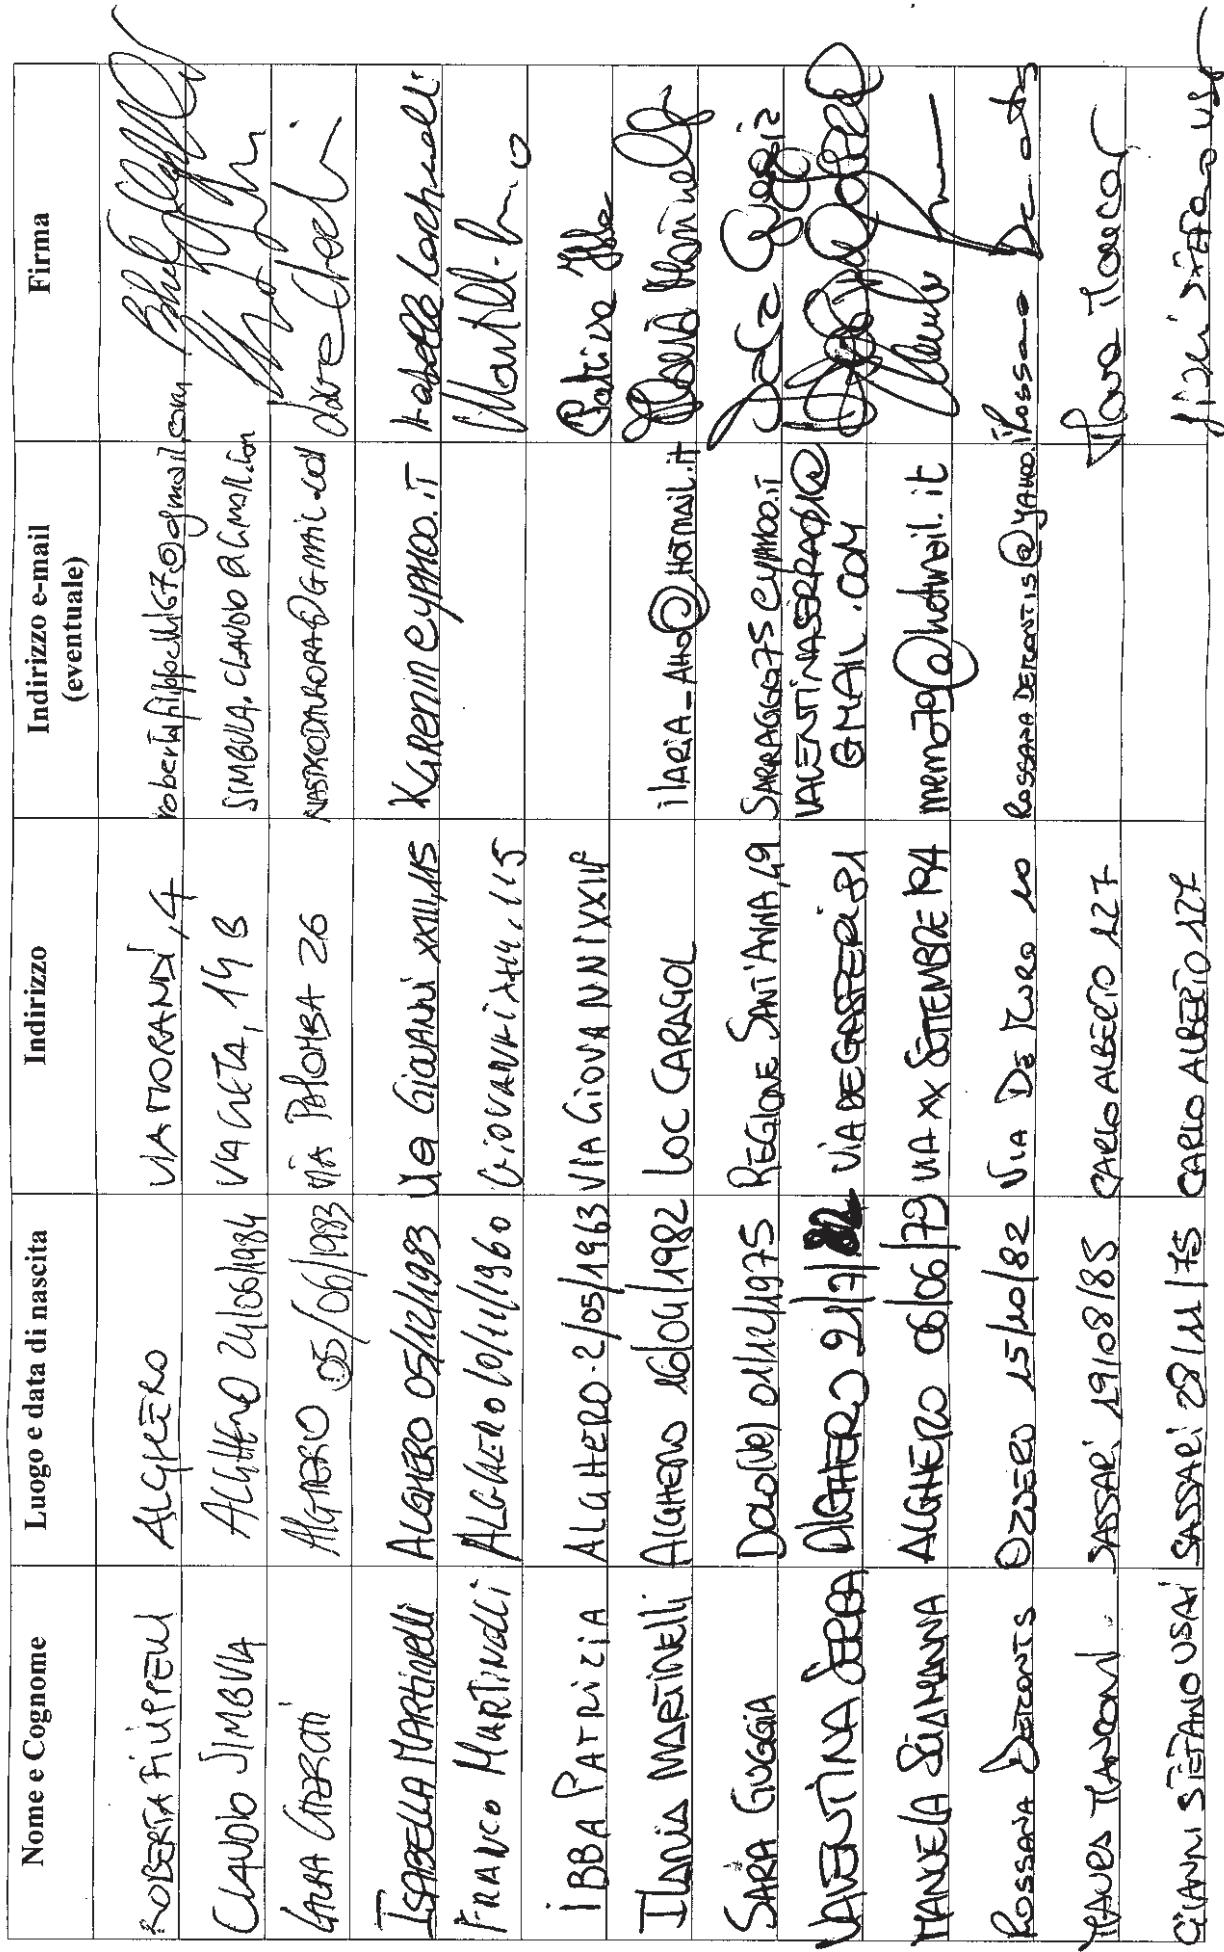 Nome e Cognome Luogo e data di nascita Indirizzo Indirizzo e-mail (eventuale) Firma
ROBERTA ALGHERO VIA MORANDI, 4
CLAUDIO SIMBULA ALGHERO 24/06/1984 VIA GAETA, 19 B SIMBULA.CLAUDIO@GMAIL.COM
ALGHERO 05/06/1983 VIA PALOMBA 26
ISABELLA MARTINELLI ALGHERO 05/12/1983 VIA GIOVANNI XXIII, 115 KGRENIN@YAHOO.IT Isabella
FRANCO MARTINELLI ALGHERO 10/11/1960 GIOVANNI XXIII, 115
IBBA PATRIZIA ALGHERO 2/05/1963 VIA GIOVANNI XXIII Patrizia Ibba
ILARIA MARTINELLI ALGHERO 16/04/1982 LOC CARAGOL ILARIA_AHO@HOTMAIL.IT Ilaria Martinelli
SARA GUGGIA DOLO (VE) 01/12/1975 REGIONE SANT'ANNA, 49 SARAGGG75@YAHOO.IT Sara Guggia
VALENTINA SERRA ALGHERO 21/7/82 VIA DE GASPERI 81 @GMAIL.COM
MANUELA ALGHERO 06/06/79 VIA XX SETTEMBRE 194 memo79@hotmail.it
ROSSANA DERCONTIS OZIERI 15/10/82 VIA DE MURO 10 ROSSANADERCONTIS@YAHOO.IT Rossana
MAURA MANCONI SASSARI 19/08/85 CARLO ALBERTO 127
GIANNI STEFANO USAI SASSARI 28/11/75 CARLO ALBERTO 127 Gianni Stefano Usai